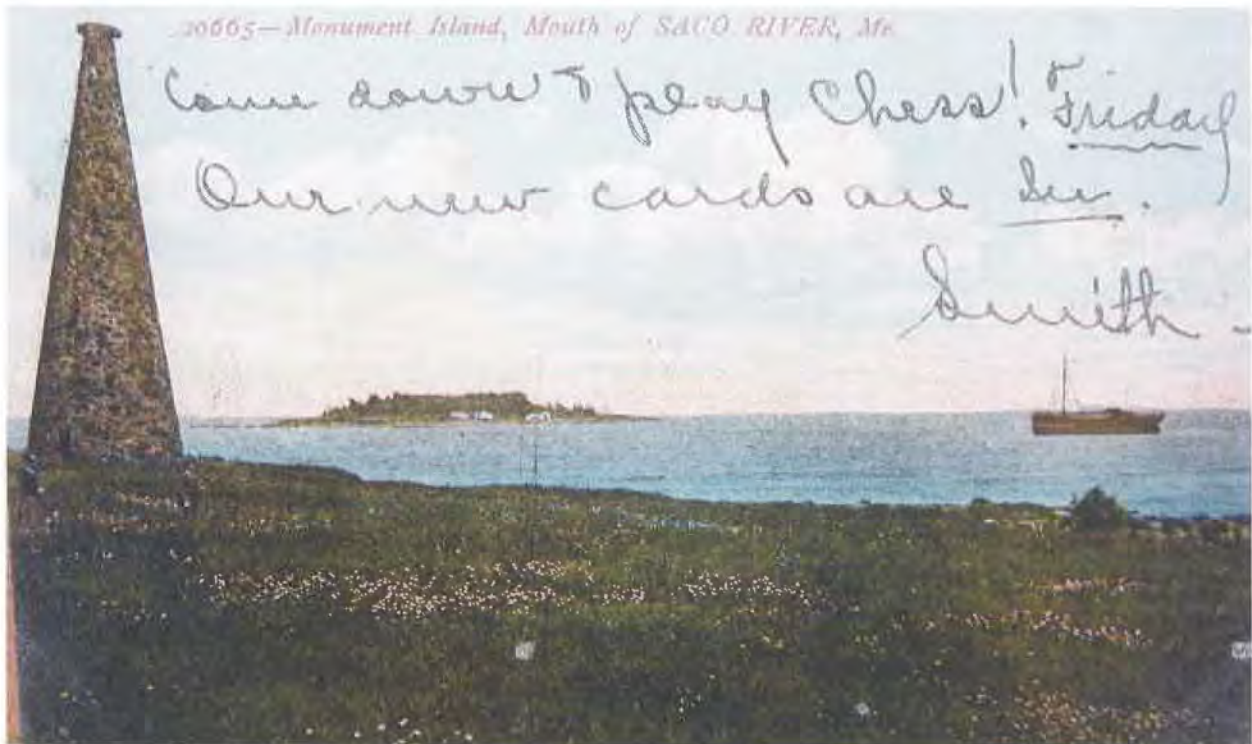 20665—Monument Island, Mouth of SACO RIVER, Me.
Come down & play Chess! Friday
Our new cards are
Smith